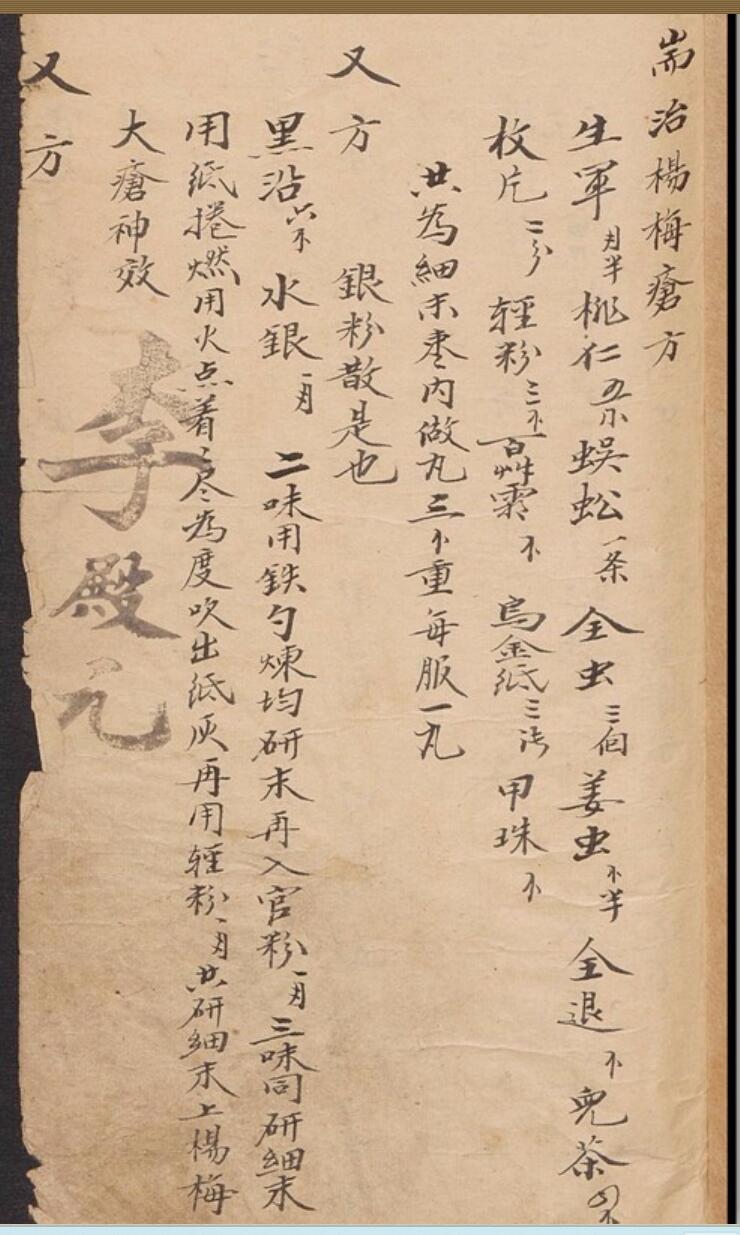 耑治楊梅瘡方
生軍 桃仁 蜈蚣一条 全虫三個 姜虫不半 全退不 兒茶
枚片二分 輕粉三不 百艸霜不 烏金紙三張 甲珠不
共為細末枣內做丸三不重每服一丸
又方 銀粉散是也
黑沿六不 水銀一月 二味用鉄勺煉均研末再入官粉一月三味同研細末
用紙捲燃用火点着之尽為度吹出紙灰再用輕粉一月共研細末上楊梅
大瘡神效
又方
李殿元